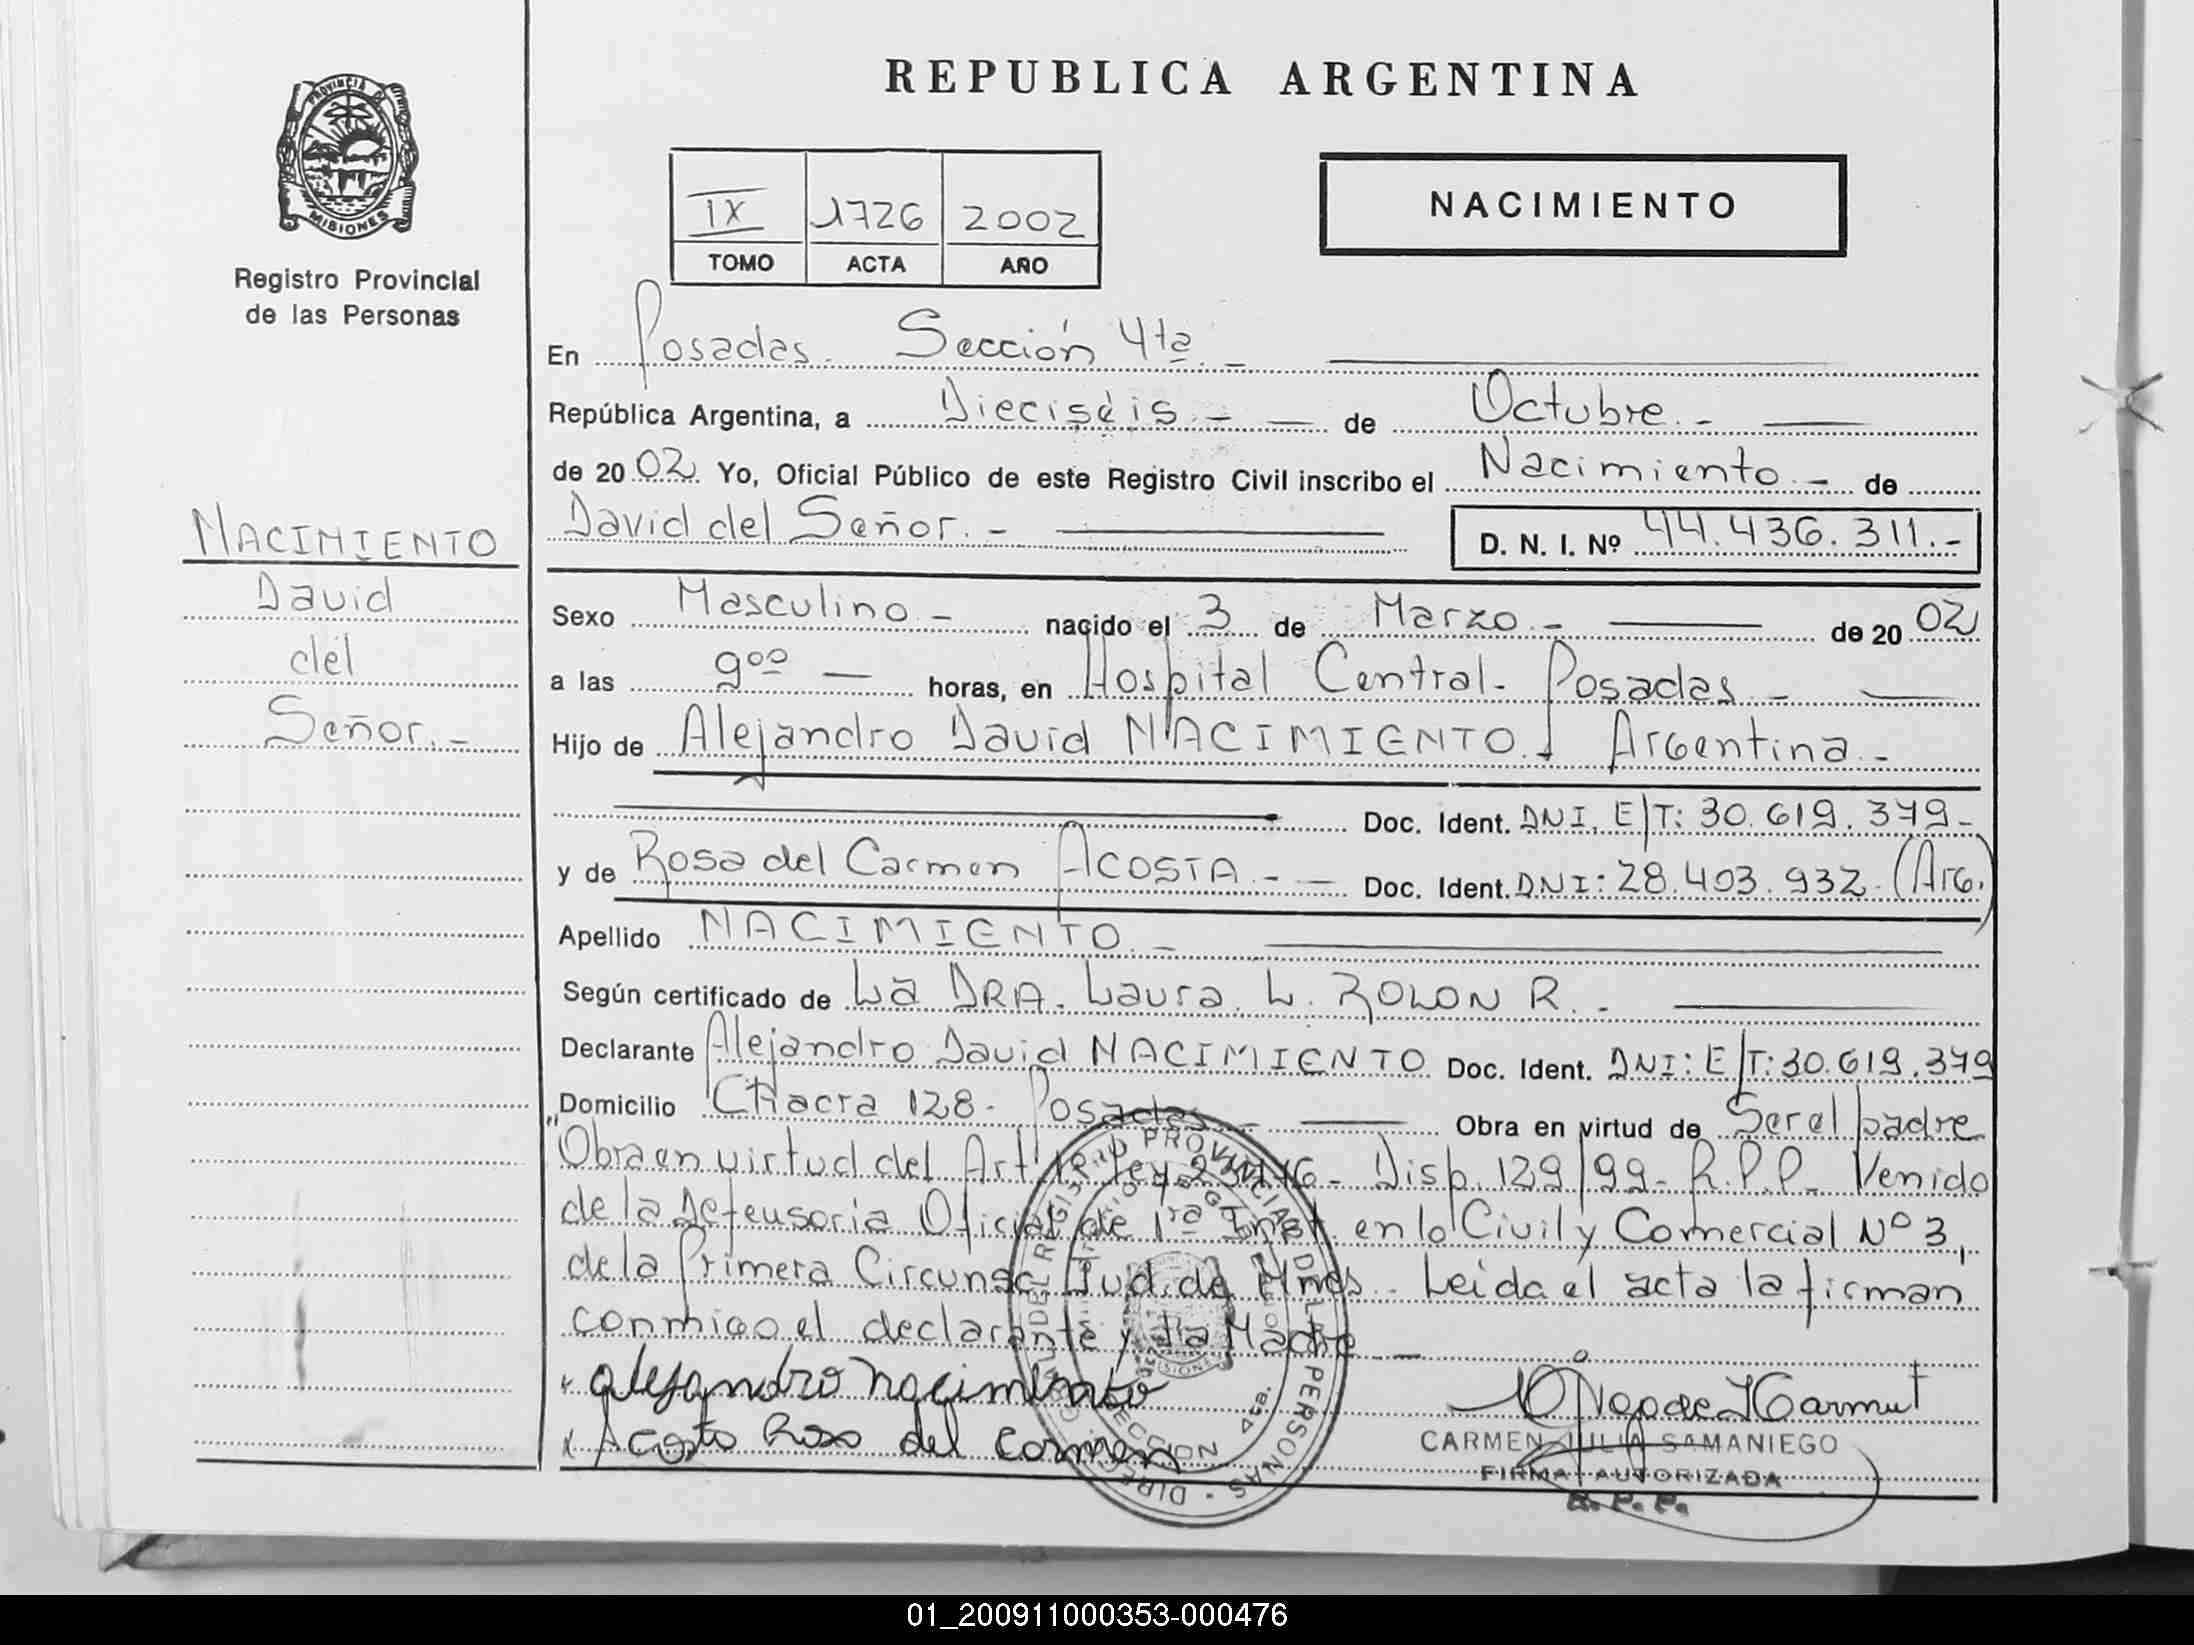 REPUBLICA ARGENTINA
PROVINCIA DE
MISIONES
Registro Provincial
de las Personas
IX 1726 2002
TOMO ACTA AÑO
NACIMIENTO
En Posadas. Sección 4ta. -
República Argentina, a Dieciséis. - de Octubre. -
de 20 02. Yo, Oficial Público de este Registro Civil inscribo el Nacimiento. - de
David del Señor. -
D. N. I. Nº 44.436.311.-
NACIMIENTO
David
del
Señor. -
Sexo Masculino. - nacido el 3 de Marzo. - de 20 02
a las 9ºº horas, en Hospital Central- Posadas -
Hijo de Alejandro David NACIMIENTO. Argentina. -
Doc. Ident. DNI. E/T: 30.619.379-
y de Rosa del Carmen ACOSTA. - - Doc. Ident. DNI: 28.403.932. (Arg.)
Apellido NACIMIENTO. -
Según certificado de La DRA. Laura. L. ROLON R. -
Declarante Alejandro David NACIMIENTO Doc. Ident. DNI: E/T: 30.619.379
Domicilio CHacra 128- Posadas. - Obra en virtud de Ser el padre
"Obra en virtud del Art. Ley 2 - Disp. 129/99- R.P.P- Venido
de la Defensoria Oficial de 1ra Inst. en lo Civil y Comercial Nº 3,
de la Primera Circunsc. Jud. de Mnes - Leida el acta la firman
conmigo el declarante y la Madre. -
alejandro nacimiento
Acosta Rosa del Carmen
CARMEN JULIA SAMANIEGO
FIRMA AUTORIZADA
R. P. P.
DIRECCION DEL REGISTRO PROVINCIAL DE LAS PERSONAS
SECCION 4ta.
MISIONES
01_200911000353-000476